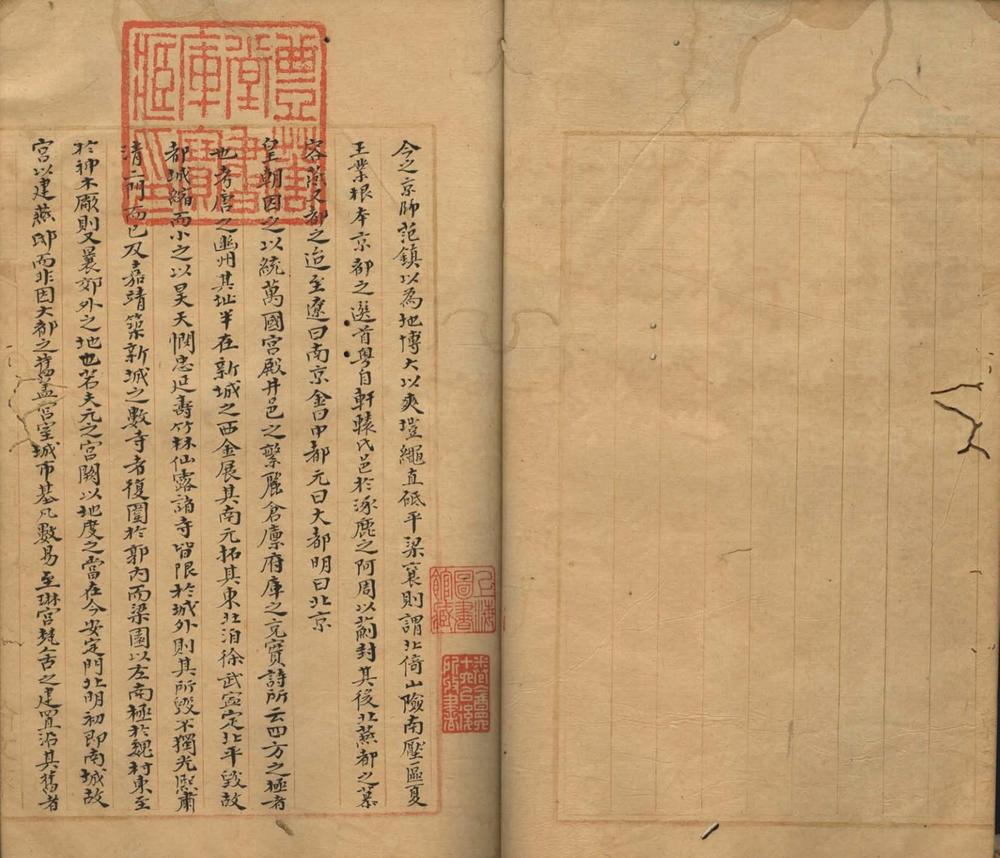 豐華堂書庫寶藏印
上海圖書館藏
今之京師范鎮以為地博大以爽塏繩直砥平梁襄則謂北倚山險南壓區夏
王業根本京都之選首粵自軒轅氏邑於涿鹿之阿周以薊封其後北燕都之慕
容燕又都之迨至遼曰南京金曰中都元曰大都明曰北京
皇朝因之以統萬國宮殿井邑之繁麗倉廩府庫之充實詩所云四方之極者
也考唐之幽州其址半在新城之西金展其南元拓其東北洎徐武寧定北平毀故
都城縮而小之以昊天憫忠延壽竹林仙露諸寺皆限於城外則其所毀不獨光熙肅
清二門而已及嘉靖築新城之數寺者復圍於郭內而梁園以左南極於魏村東至
於神木廠則又曩郊外之地也若夫元之宮闕以地度之當在今安定門北明初即南城故
宮以建燕邸而非因大都之舊盖宮室城市基凡數易至琳宮梵舍之建置沿其舊者